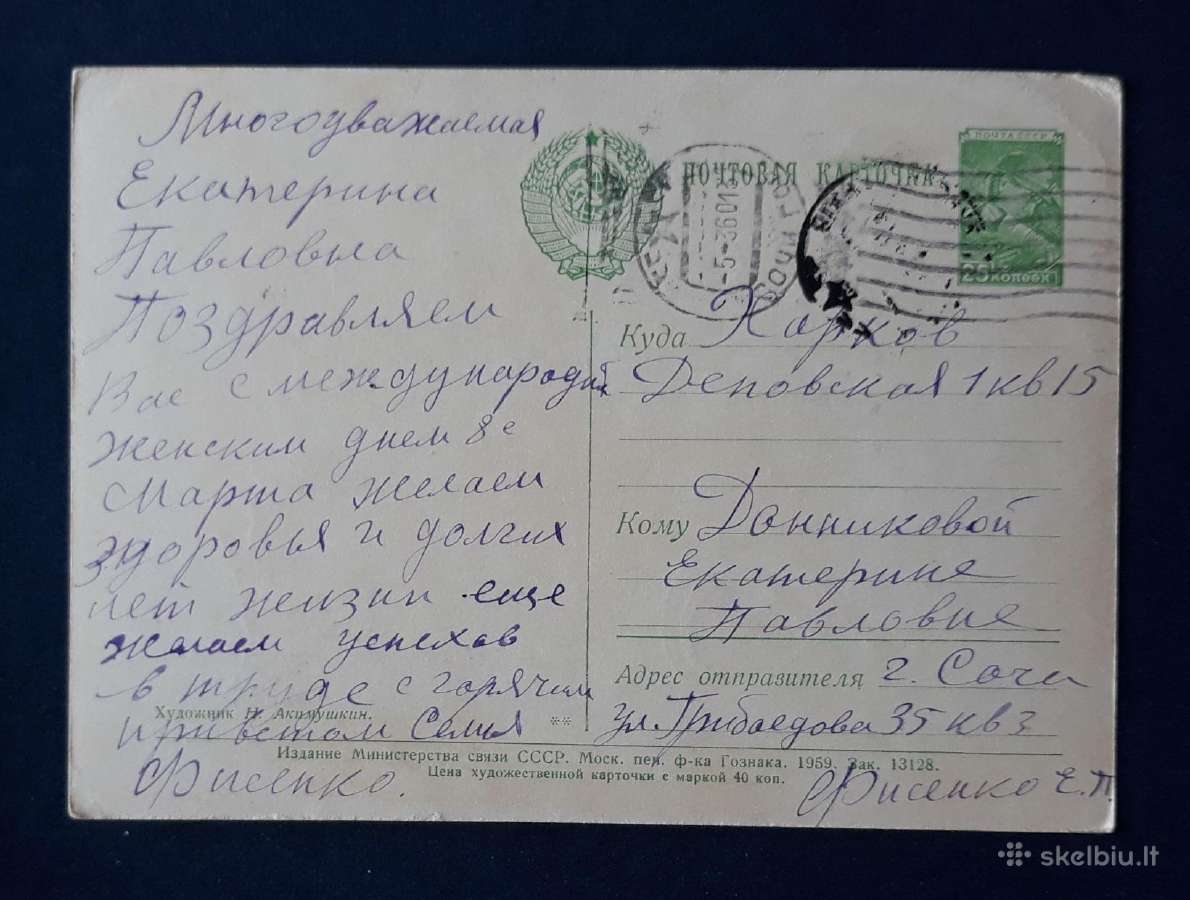 Многоуважаемая
Екатерина
Павловна
Поздравляем
Вас с международн
женским днем 8е
Марта желаем
здоровья и долгих
лет жизни еще
желаем успехов
в труде с горячим
приветом Семья
Фисенко.
Художник Н. Акимушкин.
ПОЧТОВАЯ КАРТОЧКА
ПОЧТА СССР
25 КОПЕЕК
Куда Харков
Деповская 1 кв 15
Кому Донниковой
Екатерине
Павловне
Адрес отправителя г. Сочи
ул. Грибоедова 35 кв 3
Фисенко Е.П.
**
Издание Министерства связи СССР. Моск. печ. ф-ка Гознака. 1959. Зак. 13128.
Цена художественной карточки с маркой 40 коп.
skelbiu.lt